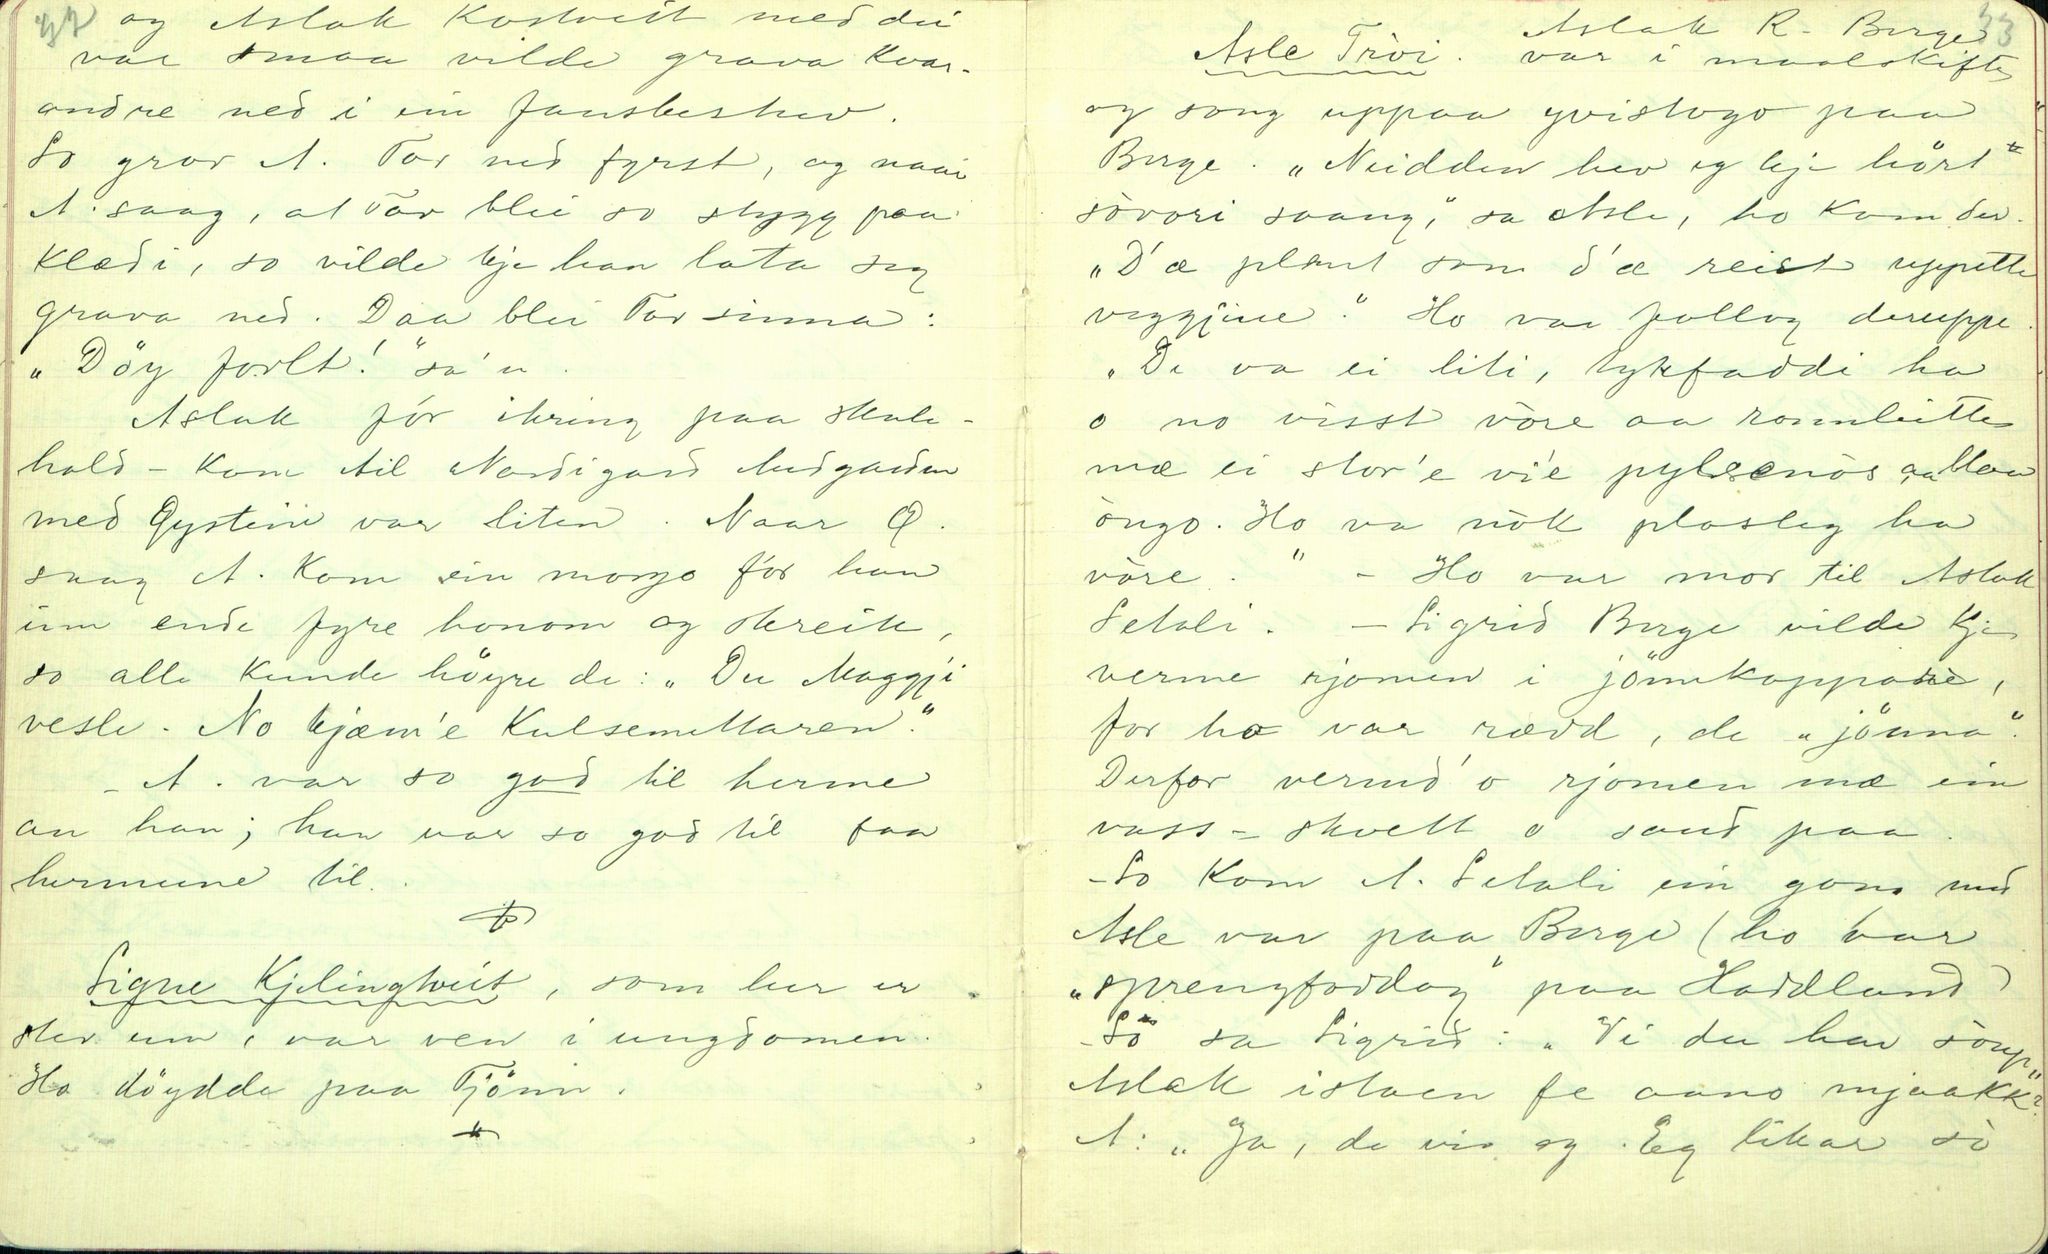 og Aslak Kostveit med dei
var smaa vilde grava kvar-
andre ned i ein fansbeshev.
So grov A. Tor ned fyrst, og naar
A. saag, at Tor blei so stygg paa
klædi, so vilde kje han lata seg
grava ned. Daa blei Tor sinna:
„Döy forlt!" sa'n.
Aslak fór ikring paa skule-
hald - kom til Nordigard Midgarden
med Øystein var liten. Naar Ø.
saag A. kom ein morgo fór han
inn ende fyre honom og skreik,
so alle kunde höyre de: „Du Maggji
vesle. No kjæm'e Kulsemettaren."
- A. var so god til herme
an han; han var so god til faa
hermune til.
Signe Kjelingtveit, som her er
stev um, var ven i ungdomen.
Ho döydde paa Tjönn.
33
Asle Tròi. Aslak R. Berge
var i maalskifte
og song uppaa yvistogo paa
Berge. „Neidden hev eg kje hört
sòvori saang," sa Asle, ho kom der.
„D'æ plent som d'æ reist uppette
veggjine." Ho var follog deruppe.
„De va ei liti, tykfaddi ha
o no visst vòre aa ronnleitte
mæ ei stor'e vi'e pylsenòs aa blaa
òngo. Ho va nòk plasleg ha
vòre." - Ho var mor til Aslak
Setali. - Sigrid Berge vilde kje
verme rjomen i jönnkoppane,
for ho var rædd, de „jönna".
Derfor vermd'o rjomen mæ ein
vass-skvett o saud paa.
- So kom A. Setali ein gong med
Asle var paa Berge (ho var
„sprengfoddog" paa Haddland)
- So sa Sigrid: „Vi du hav sòup,
Aslak istaen fe aano mjaakk?"
A: „Ja, de vi eg. Eg likar so